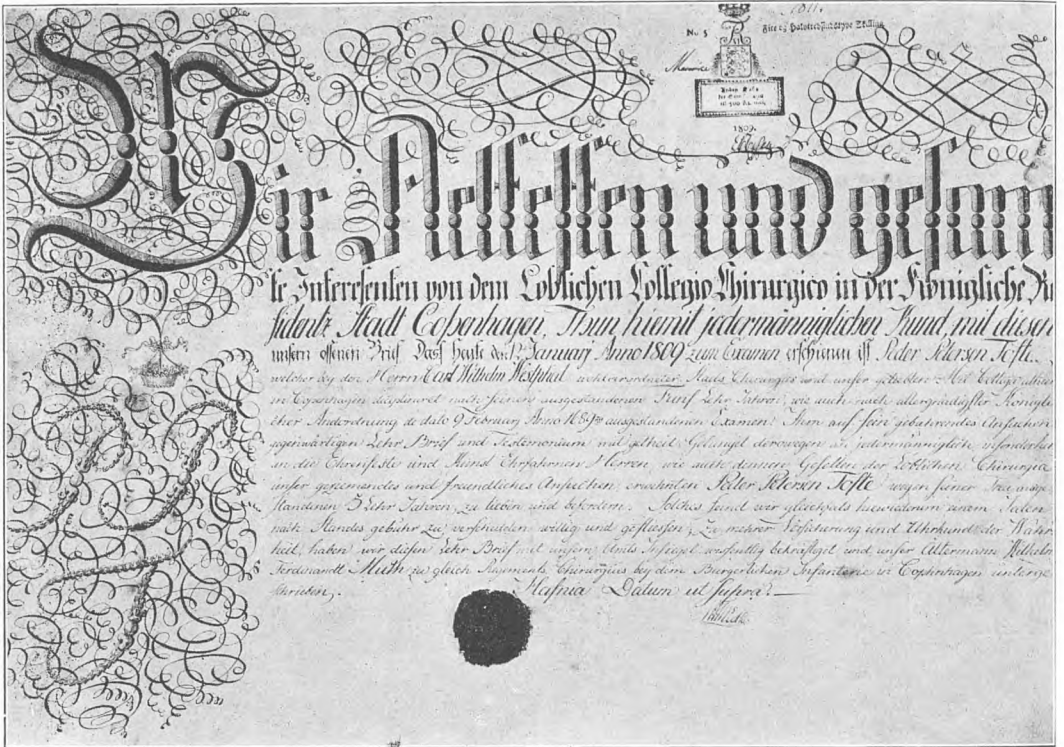 No 5
1809.
Wir Aeltesten und gesam
te Interessenten von dem Loblichen Collegio Chirurgico in der Königliche Re
sidentz Stadt Copenhagen, Thun hiemit jedermänniglichen Kund, mit diesen
unsern offenen Brief Dass heute den Januarij Anno 1809 zum Examen erschienen ist Peder Petersen Tofte
welcher bey den Herrn Carl Wilhelm Westphal Stads Chirurgus und unser geliebter Mit Collega alhier
in Copenhagen nach seinen ausgestandenen Fünf Lehr Jahren, wie auch nach allergnädigster Königli
cher Anordnung de dato 9 Februarij Anno ausgestandenen Examen. Ihm auf sein gebührendes Ansuchen
gegenwärtigen Lehr Brief und Testemonium mit getheilt. Gelanget derowegen an jedermänniglich
an die Ehrenfeste und Kunst Ehrfahrnen Herren, wie auch dennen Gesellen der Löblichen Chirurgie
unser geziemendes und freundliches Ansuchen, erwehnten Peder Petersen Tofte wegen seiner
standenen 5 Lehr Jahren, zu lieben und befordern. Solches seind wir gleichfals hiewiederum einem Jeden
nach Standes gebühr zu verschulden willig und geflissen, Zu mehrer Versicherung und Uhrkund der Wahr
heit, haben wir diesen Lehr Brief mit unsern Amts Insiegel wissentlig bekräftiget und unser Altermann Wilhelm
Ferdinandt Muth zu gleich Regiments Chirurgus bey dem Burgerlichen Infanterie in Copenhagen unterge
schrieben.
Hafnia Datum ut supra.